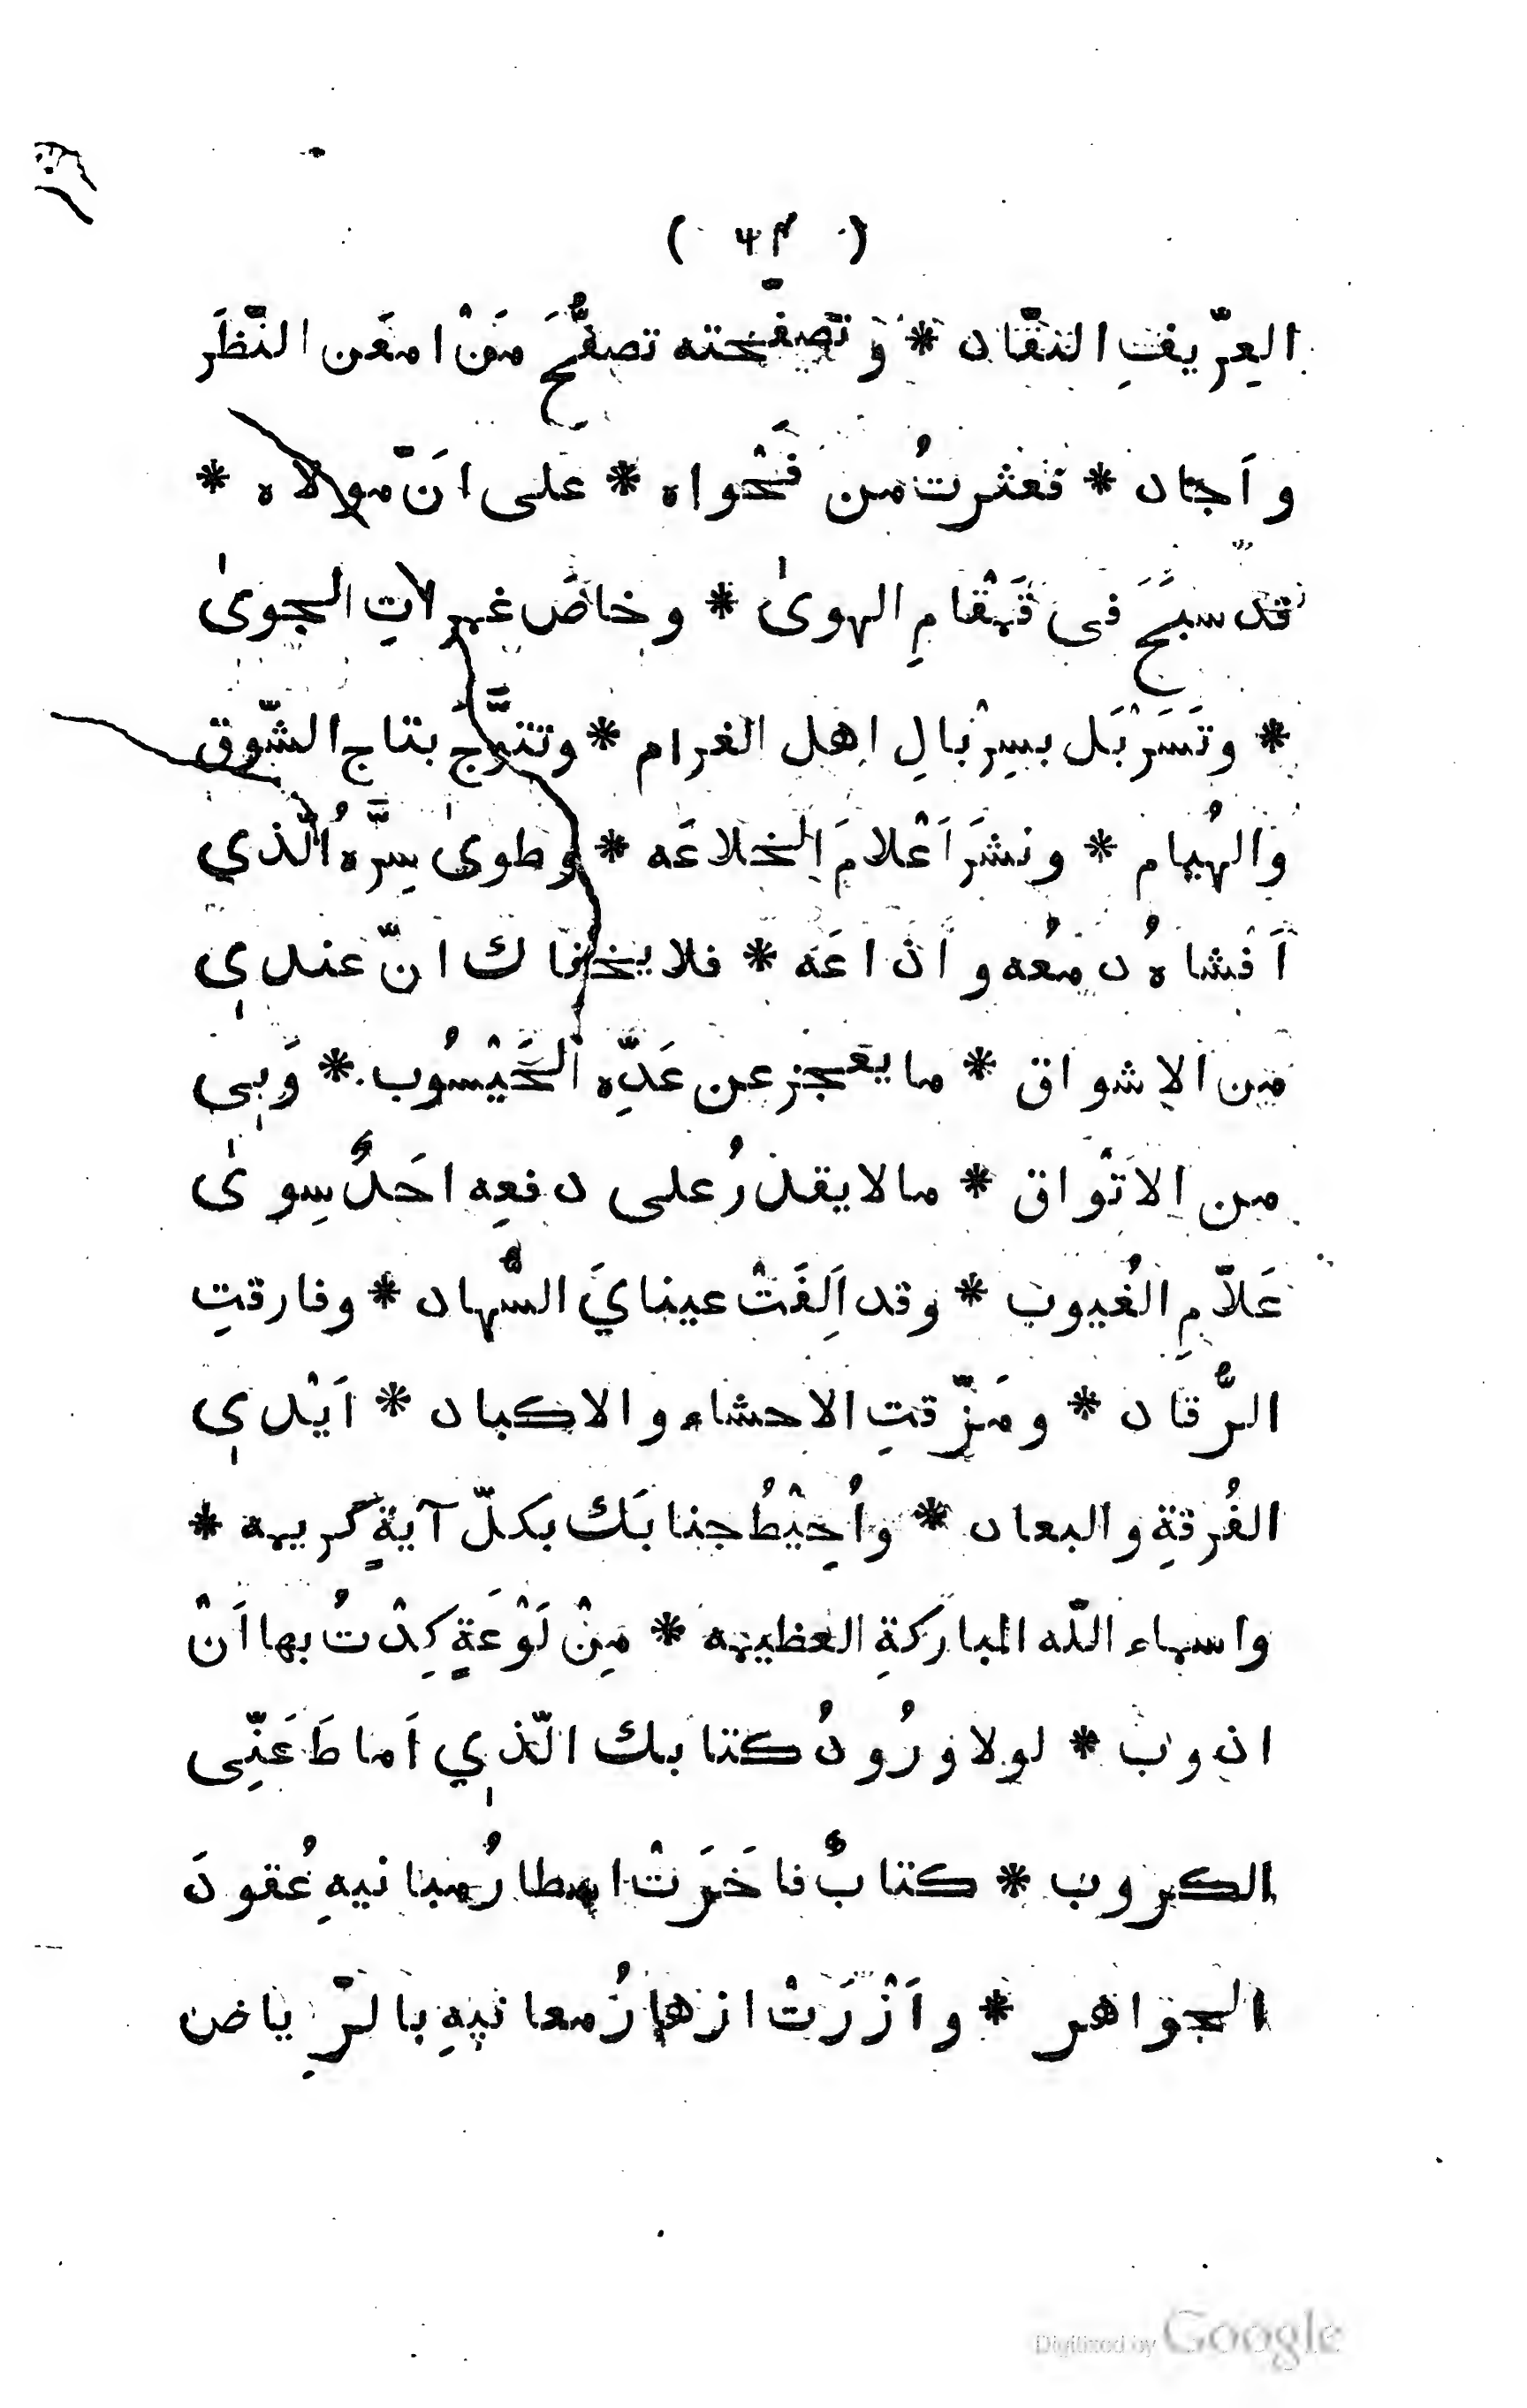 ( ۴۶ )
العِرّيفِ النقّاد * وتصفّحته تصفُّحَ مَنْ امعَن النّظَر
و اَجاد * فعثرتُ من فَحْواه * على انَّ مولاه *
قد سبَحَ فى قَمْقامِ الهوىٰ * وخاضَ غمراتِ الجوىٰ
* وتَسَرْبَل بسِرْبالِ اهل الغرام * وتتوَّجَ بتاج الشّوق
والهُيام * ونشَرَ اَعْلامَ الخلاعَه * وطوىٰ سِرَّهُ الّذي
اَفشاهُ دمعُه و اذاعَه * فلا يخفاك انّ عندي
من الاشواق * ما يعجز عن عَدِّه الحَيْسُوب * وَبِى
من الاتْواق * مالا يقدرُ على دفعِه احَدٌ سِوىٰ
عَلاّمِ الغُيوب * وقد اَلِفَتْ عينايَ السُّهاد * وفارقتِ
الرُّقاد * ومَزّقتِ الاحشاء والاكباد * اَيْدي
الفُرقةِ والبعاد * واُحِيْطُ جنابَك بكلّ آيةٍ كريمه *
واسماء اللّه المباركةِ العظيمه * مِنْ لَوْعَةٍ كِدْتُ بها اَنْ
اذوب * لولا وُرُودُ كتابك الّذي اَماطَ عَنِّى
الكروب * كتابٌ فاخَرَتْ اسطارُ مبانيهِ عُقودَ
الجواهر * و اَزْرَتْ ازهارُ معانيهِ بالرّياض
Digitized by Google